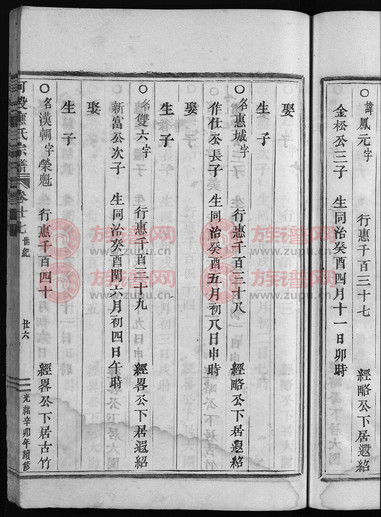 諱鳳元字 行惠千百三十七 經略公下居遐紹
金松公三子 生同治癸酉四月十一日卯時
娶
生子
名惠城字 行惠千百三十八 經略公下居遐紹
作仕公長子 生同治癸酉五月初八日申時
娶
生子
名雙六字 行惠千百三十九 經畧公下居遐紹
新富公次子 生同治癸酉閏六月初四日午時
娶
生子
名漢朝字榮魁 行惠千百四十 經畧公下居古竹
氏宗譜 卷十七 世紀 廿六 光緒辛卯年續修
族譜网
www.zupu.cn